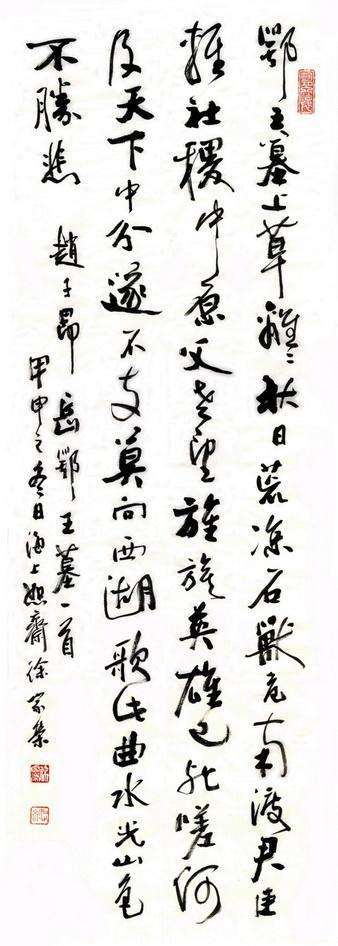 鄂王墓上草離々秋日荒涼石獸危南渡君臣
輕社稷中原父老望旌旗英雄已死嗟何
及天下中分遂不支莫向西湖歌此曲水光山色
不勝悲
趙子昂岳鄂王墓一首
甲申之冬日海上恕齋徐